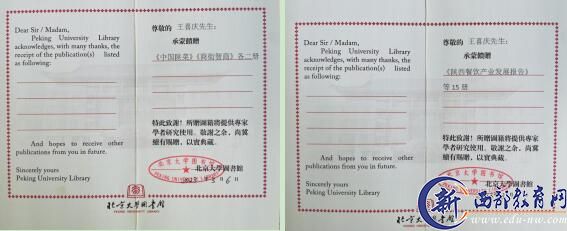 Dear Sir / Madam,
Peking University Library
acknowledges, with many thanks, the
receipt of the publication(s) listed
as following:
And hopes to receive other
publications from you in future.
Sincerely yours
Peking University Library
尊敬的 王喜庆先生:
承蒙饋贈
《中国陕菜》《商街智商》各二册
特此致謝!所贈圖籍將提供專家
學者研究使用。敬謝之余,尚冀
續有賜贈,以實典藏。
北京大學圖書館
北京大学图书馆
PEKING UNIVERSITY LIBRARY
北京大學圖書館
PEKING UNIVERSITY LIBRARY
Dear Sir / Madam,
Peking University Library
acknowledges, with many thanks, the
receipt of the publication(s) listed
as following:
And hopes to receive other
publications from you in future.
Sincerely yours
Peking University Library
尊敬的 王喜庆先生:
承蒙饋贈
《陕西餐饮产业发展报告》
等 15 册
特此致謝!所贈圖籍將提供專家
學者研究使用。敬謝之余,尚冀
續有賜贈,以實典藏。
北京大學
北京大學圖書館
PEKING UNIVERSITY LIBRARY
新 西部教育网
www.edu-nw.com